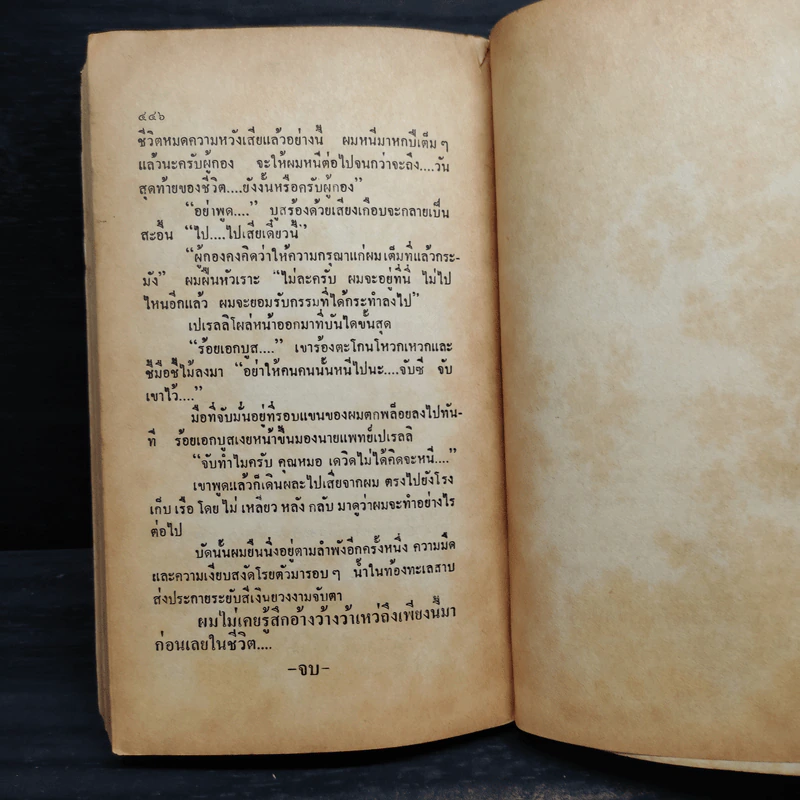 ๕๔๖
ชีวิตหมดความหวังเสียแล้วอย่างนี้ ผมหนีมาหกปีเต็ม ๆ
แล้วนะครับผู้กอง จะให้ผมหนีต่อไปจนกว่าจะถึง....วัน
สุดท้ายของชีวิต....ยังงั้นหรือครับผู้กอง”
“อย่าพูด....” บูสร้องด้วยเสียงเกือบจะกลายเป็น
สะอื้น “ไป....ไปเสียเดี๋ยวนี้”
“ผู้กองคงคิดว่าให้ความกรุณาแก่ผมเต็มที่แล้วกระ-
มัง” ผมฝืนหัวเราะ “ไม่ละครับ ผมจะอยู่ที่นี่ ไม่ไป
ไหนอีกแล้ว ผมจะยอมรับกรรมที่ได้กระทำลงไป”
เปเรลลิโผล่หน้าออกมาที่บันใดขั้นสุด
“ร้อยเอกบูส....” เขาร้องตะโกนโหวกเหวกและ
ชี้มือชี้ไม้ลงมา “อย่าให้คนคนนั้นหนีไปนะ....จับซี จับ
เขาไว้....”
มือที่จับมั่นอยู่ที่รอบแขนของผมตกพล็อยลงไปทัน-
ที ร้อยเอกบูสเงยหน้าขึ้นมองนายแพทย์เปเรลลิ
“จับทำไมครับ คุณหมอ เดวิดไม่ได้คิดจะหนี....”
เขาพูดแล้วก็เดินผละไปเสียจากผม ตรงไปยังโรง
เก็บ เรือ โดย ไม่ เหลียว หลัง กลับ มาดูว่าผมจะทำอย่างไร
ต่อไป
บัดนั้นผมยืนนิ่งอยู่ตามลำพังอีกครั้งหนึ่ง ความมืด
และความเงียบสงัดโรยตัวมารอบ ๆ น้ำในท้องทะเลสาบ
ส่งประกายระยับสีเงินยวงงามจับตา
ผมไม่เคยรู้สึกอ้างว้างว้าเหว่ถึงเพียงนี้มา
ก่อนเลยในชีวิต....
–จบ–